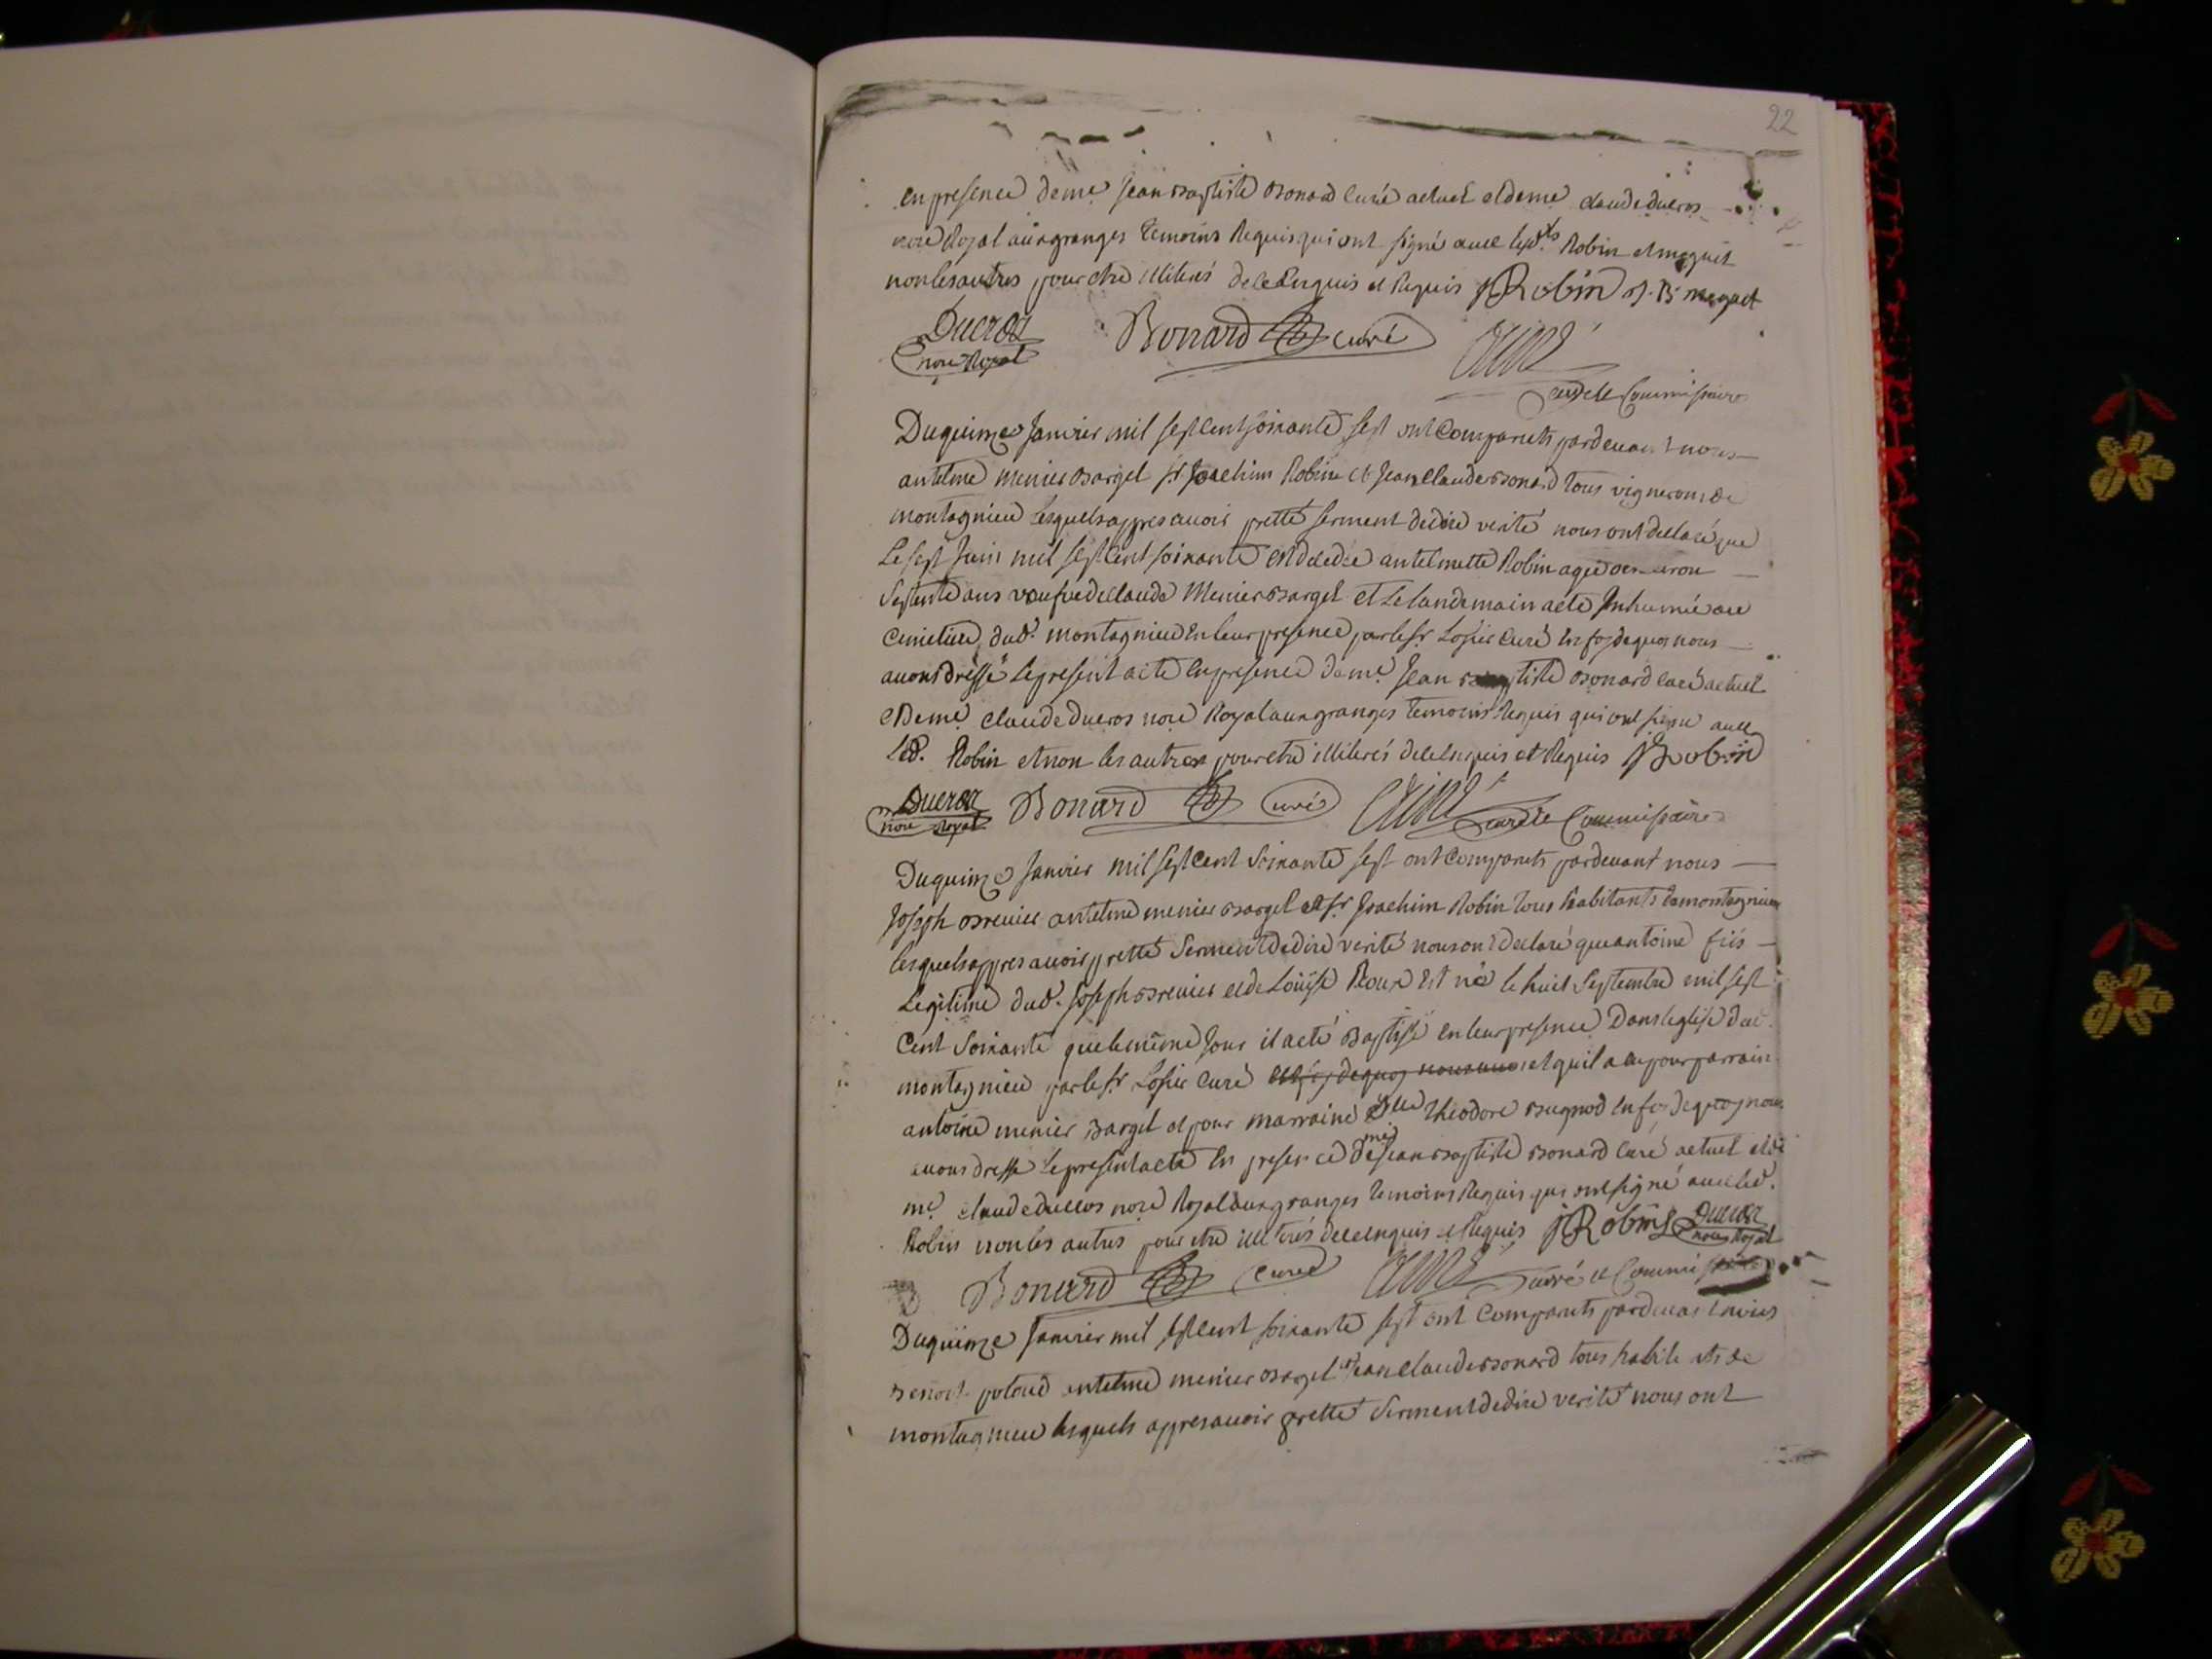 22
en presence de me Jean Baptiste Bonard Curé actuel et de me claude ducros
nore Royal aux granges temoins Requis qui ont signé avec lesdts Robin et meguet
non les autres pour etre illiterés de ce Enquis et Requis JRobin J. B. meguet
Ducros
nore Royal
Bonard curé
curé et Commissaire
Du quinze Janvier mil sept cent soixante sept ont Comparuts pardevant nous
antelme menier Bargel sr Joachim Robin et Jean Claude Bonard tous vignerons de
montagnieu Lesquels appres avoir pretté serment de dire verité nous ont declaré que
Le sept Juin mil sept Cent soixante est decedée antelmette Robin agée
septente ans veufve de Claude Menier Bargel et Le landemain a été Inhumée au
Cimetiere dud. montagnieu En leur presence par le sr Losier Curé En foy de quoy nous
avons dressé Le present acte En presence de me Jean Baptiste Bonard Curé actuel
et De me claude ducros nore Royal aux granges temoins Requis qui ont signé avec
Led. Robin et non les autres pour etre illiterés de ce Enquis et Requis JRobin
Ducros
nore Royal
Bonard Curé
curé et Commissaire
Du quinze Janvier mil sept Cent Soixante sept ont Comparuts pardevant nous
Joseph Brevier antelme menier Bargel et sr Joachim Robin tous habitants a montagnieu
les quels appres avoir pretté Serment de dire verité nous ont declaré que antoine fils
Legitime dud. Joseph Brevier et de Loüise Roux Est né le huit Septembre mil sept
Cent Soixante que le même Jour il a eté Baptisé en leur presence Dans leglise dud.
montagnieu par le sr Losier Curé en foy de quoy nous avons et quil a eu pour parrain
antoine menier Bargel et pour marraine Dlle Theodore Bugnod En foy de quoy nous
avons dressé Le present acte En presence de me Jean Baptiste Bonard Curé actuel et de
me claude ducros nore Royal aux granges temoins Requis qui ont signé avec led.
Robin non les autres pour etre illiterés de ce Enquis et Requis JRobin Ducros
nore Royal
Bonard Curé
curé et Commissaire
Du quinze Janvier mil sept Cent soixante sept ont Comparuts pardevant nous
Benoit antelme menier Bargel et Jean Claude Bonard tous habitants de
montagnieu lesquels appres avoir pretté Serment de dire verité nous ont